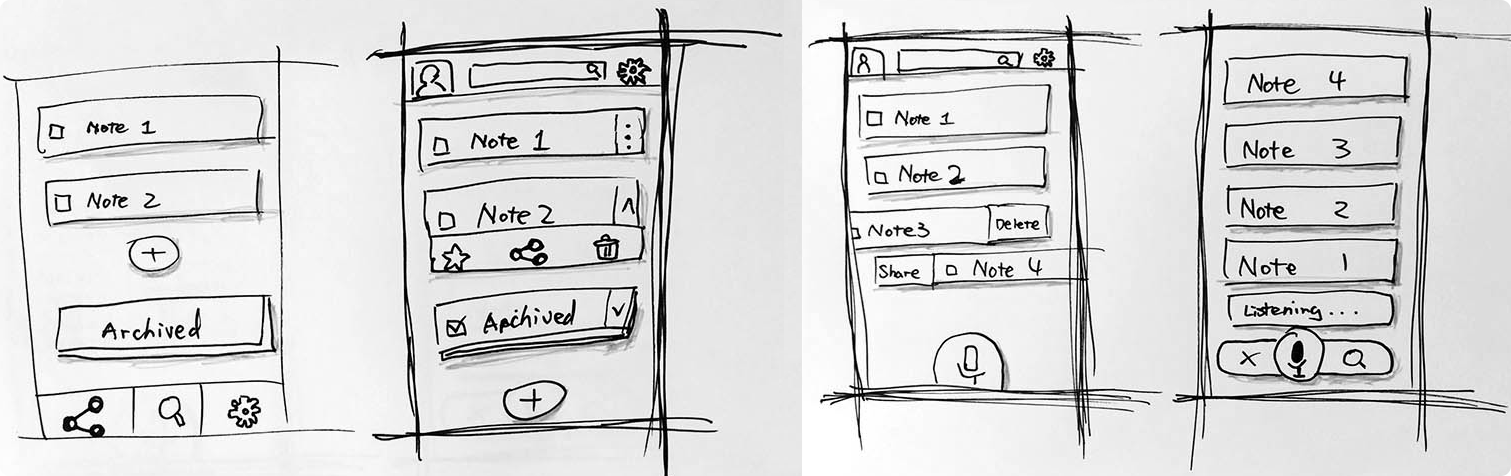 Note 1
Note 2
Archived
Note 1
Note 2
Archived
Note 1
Note 2
Note3 Delete
Share Note 4
Note 4
Note 3
Note 2
Note 1
Listening...